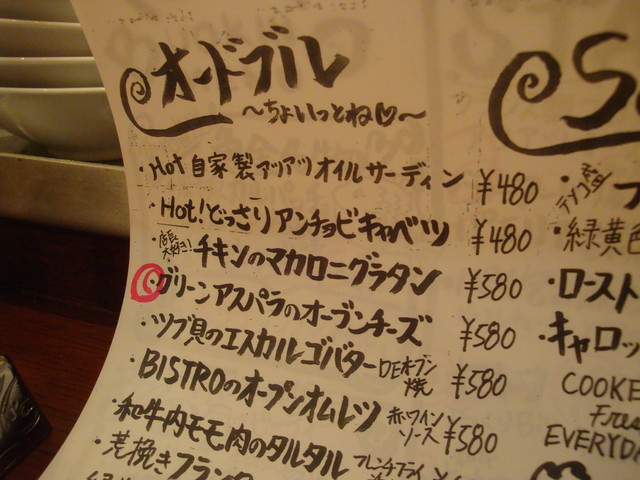 オードブル
～ちょいっとね♡～
・Hot 自家製アツアツオイルサーディン ¥480
・Hot!どっさりアンチョビキャベツ ¥480
・店長大好き!チキンのマカロニグラタン ¥580
・グリーンアスパラのオーブンチーズ ¥580
・ツブ貝のエスカルゴバターDEオーブン焼 ¥580
・BISTROのオープンオムレツ 赤ワインソース ¥580
・和牛内モモ肉のタルタル フレンチフライ
・荒挽きフランク
・緑黄色
・ロースト
・キャロッ
COOKE
Fres
EVERYDA